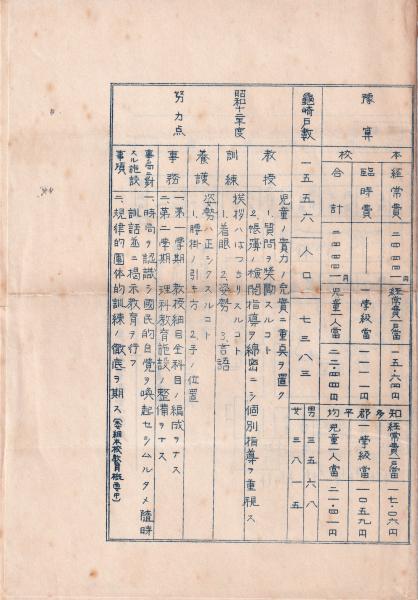 豫算
本校
経常費 二四四一円
臨時費 ―
合計 二四四一円
経常費一戸當 一五・六四円
一學級當
児童一人當 二二・四四円
知多郡平均
経常費一戸當 一七・〇六円
一學級當 一〇五九円
児童一人當 二一・四一円
龜崎戸數 一五五六 人口 七三八三
男 三五六八
女 三八一五
昭和十三年度
努力点
教授
児童ノ實力ノ充實ニ重点ヲ置ク
1.質問ヲ奨勵スルコト
2.帳簿ノ檢閲指導ヲ綿密ニシ個別指導ヲ重視ス
訓練
挨拶ハはつきりスルコト
1.着眼 2.姿勢 3.言語
養護
姿勢ハ正シクスルコト
1.腰掛ノ引キ方 2.手ノ位置
事務
一、第一學期 教授細目全科目ノ編成ヲナス
二、第二學期 理科教育施設ノ整備ヲナス
事局ニ對スル施設事項
一、時局ヲ認識シ國民的自覺ヲ喚起セシムルタメ隨時
訓話並ニ掲示教育ヲ行フ
二、規律的團体的訓練ノ徹底ヲ期ス